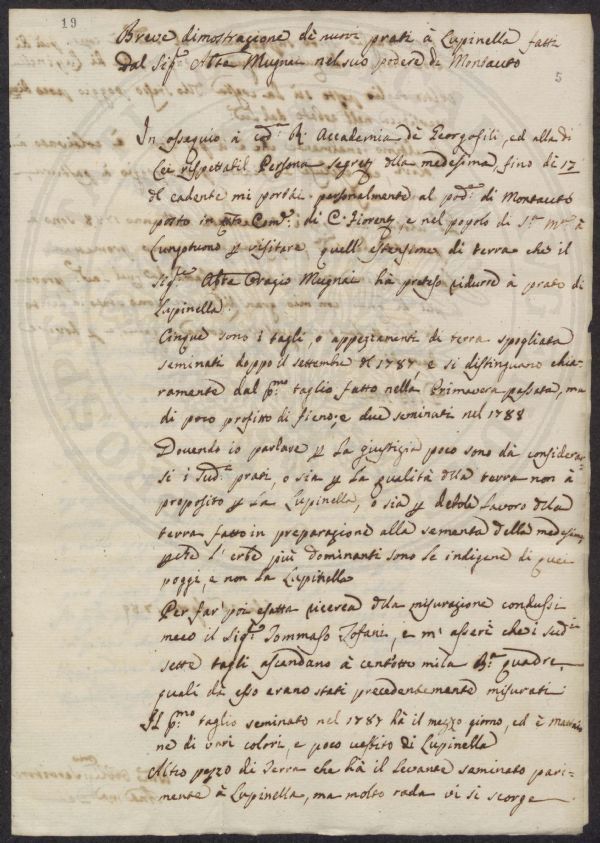 19
Breve dimostrazione di nuovi prati à Lupinella fatti
dal Sigr. Abte Mugnai nel suo podere di Montauto
5
In ossequio à cod.a R. Accademia de Georgofili, ed alla di
Lei rispettabil Persona Segreto della medesima, fino di 17
del cadente mi portai personalmente al pod.e di Montauto
posto in Com.à di C. Fiorent.o, e nel popolo di S.ta M.a à
Lungotuono p visitare quell'Estensione di terra che il
Sigr. Abte Orazio Mugnai hà preteso ridurre à prato di
Lupinella.
Cinque sono i tagli, o appezzamenti di terra spogliata
seminati doppo il settembre del 1787, e si distinguano chia-
ramente dal p.mo taglio fatto nella Primavera passata, ma
di poco profitto di fieno, e due seminati nel 1788
Dovendo io parlare p la giustizia poco sono da considerar-
si i sud.i prati, o sia p la qualità della terra non à
proposito p la Lupinella, o sia p debola lavoro della
terra fatto in preparazione alla sementa della medesima,
pche l'erbe più dominanti sono le indigene di quei
poggi, e non la Lupinella
Per far poi esatta ricerca della misurazione condussi
meco il Sigr. Tommaso Zofani, e m'asserì che i sud.i
sette tagli ascendano à cent'otto mila B.a quadre,
quali dà esso erano stati precedentemente misurati.
Il p.mo taglio seminato nel 1787 hà il mezzo giorno, ed è mattaio
ne di vari colori, e poco vestito di Lupinella
Altro pezzo di Terra che hà il levante seminato pari-
mente à Lupinella, ma molto rada vi si scorge